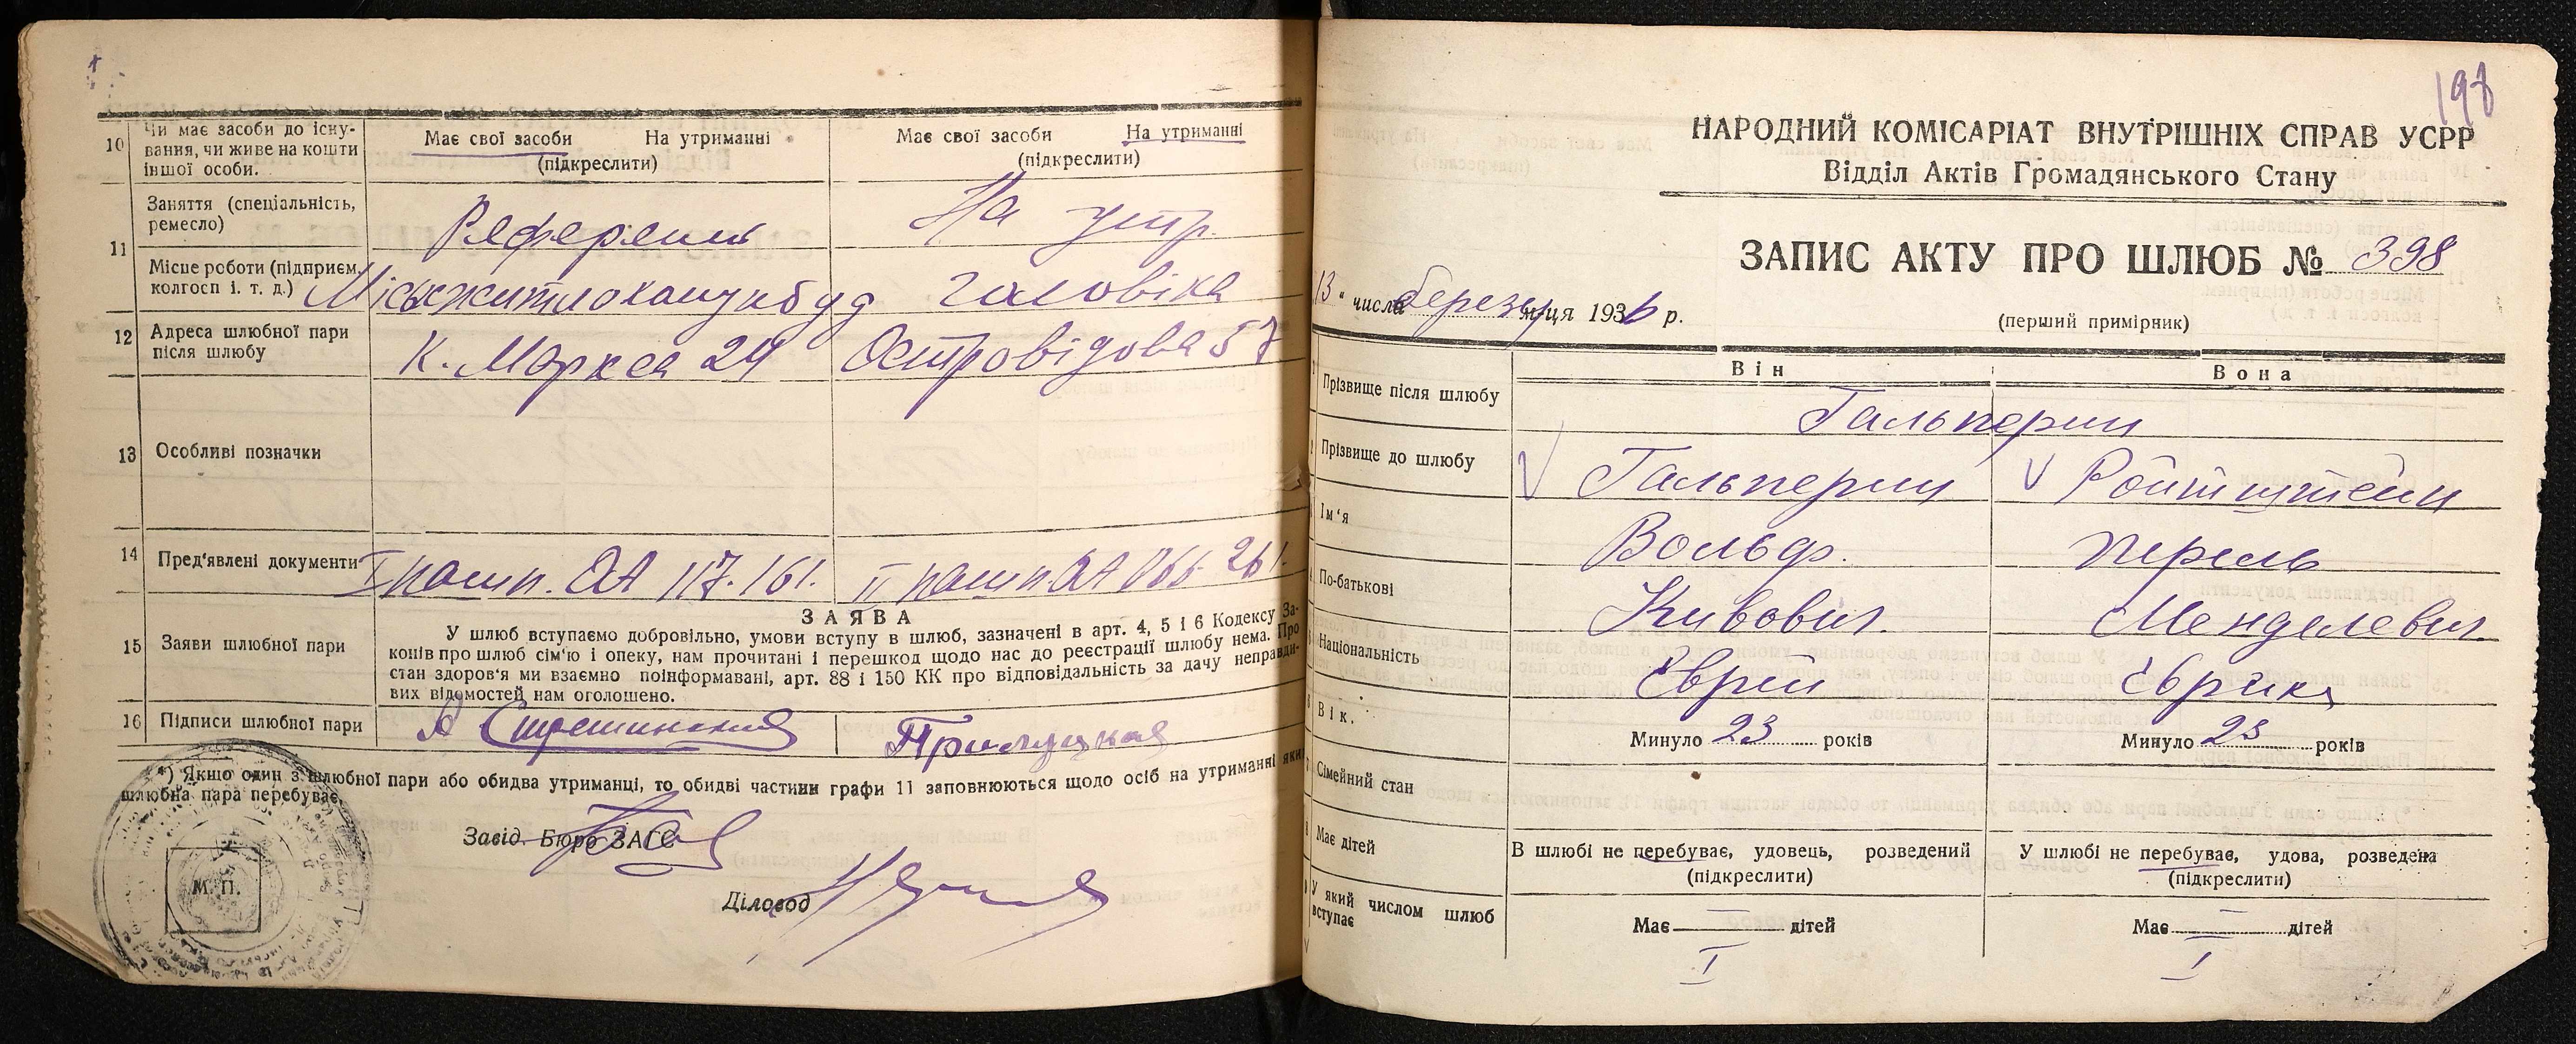 10
Чи має засоби до існу-
вання, чи живе на кошти
іншої особи.
Має свої засоби На утриманні
(підкреслити)
Має свої засоби На утриманні
(підкреслити)
11
Заняття (спеціальність,
ремесло)
Референт
На утр.
Місце роботи (підприєм.
колгосп і. т. д.)
чоловіка
12
Адреса шлюбної пари
після шлюбу
К. Маркса 24
Островідова 57
13
Особливі позначки
14
Пред'явлені документи
I пашп. ОА 117.161.
II пашп. ОА 066 261.
15
Заяви шлюбної пари
ЗАЯВА
У шлюб вступаємо добровільно, умови вступу в шлюб, зазначені в арт. 4, 5 і 6 Кодексу За-
конів про шлюб сім'ю і опеку, нам прочитані і перешкод щодо нас до реєстрації шлюбу нема. Про
стан здоров'я ми взаємно поінформавані, арт. 88 і 150 КК про відповідальність за дачу неправди-
вих відомостей нам оголошено.
16
Підписи шлюбної пари
Прилуцкая
*) Якщо один з шлюбної пари або обидва утриманці, то обидві частини графи 11 заповнюються щодо осіб на утриманні яких
шлюбна пара перебуває.
Завід. Бюро ЗАГС
Діловод
М. П.
198
НАРОДНИЙ КОМІСАРІАТ ВНУТРІШНІХ СПРАВ УСРР
Відділ Актів Громадянського Стану
ЗАПИС АКТУ ПРО ШЛЮБ № 398
13 " числа березня м-ця 1936 р.
(перший примірник)
Він
Вона
Прізвище після шлюбу
Гальперин
Прізвище до шлюбу
V Гальперин
V Ройтштейн
Ім'я
Вольф.
Перель
По-батькові
Кивович.
Менделевич
Національність
Єврей
Єврейка
Вік.
Минуло 23 років
Минуло 23 років
Сімейний стан
В шлюбі не перебуває, удовець, розведений
(підкреслити)
У шлюбі не перебуває, удова, розведена
(підкреслити)
Має дітей
Має — дітей
Має — дітей
У який числом шлюб
вступає
I
I